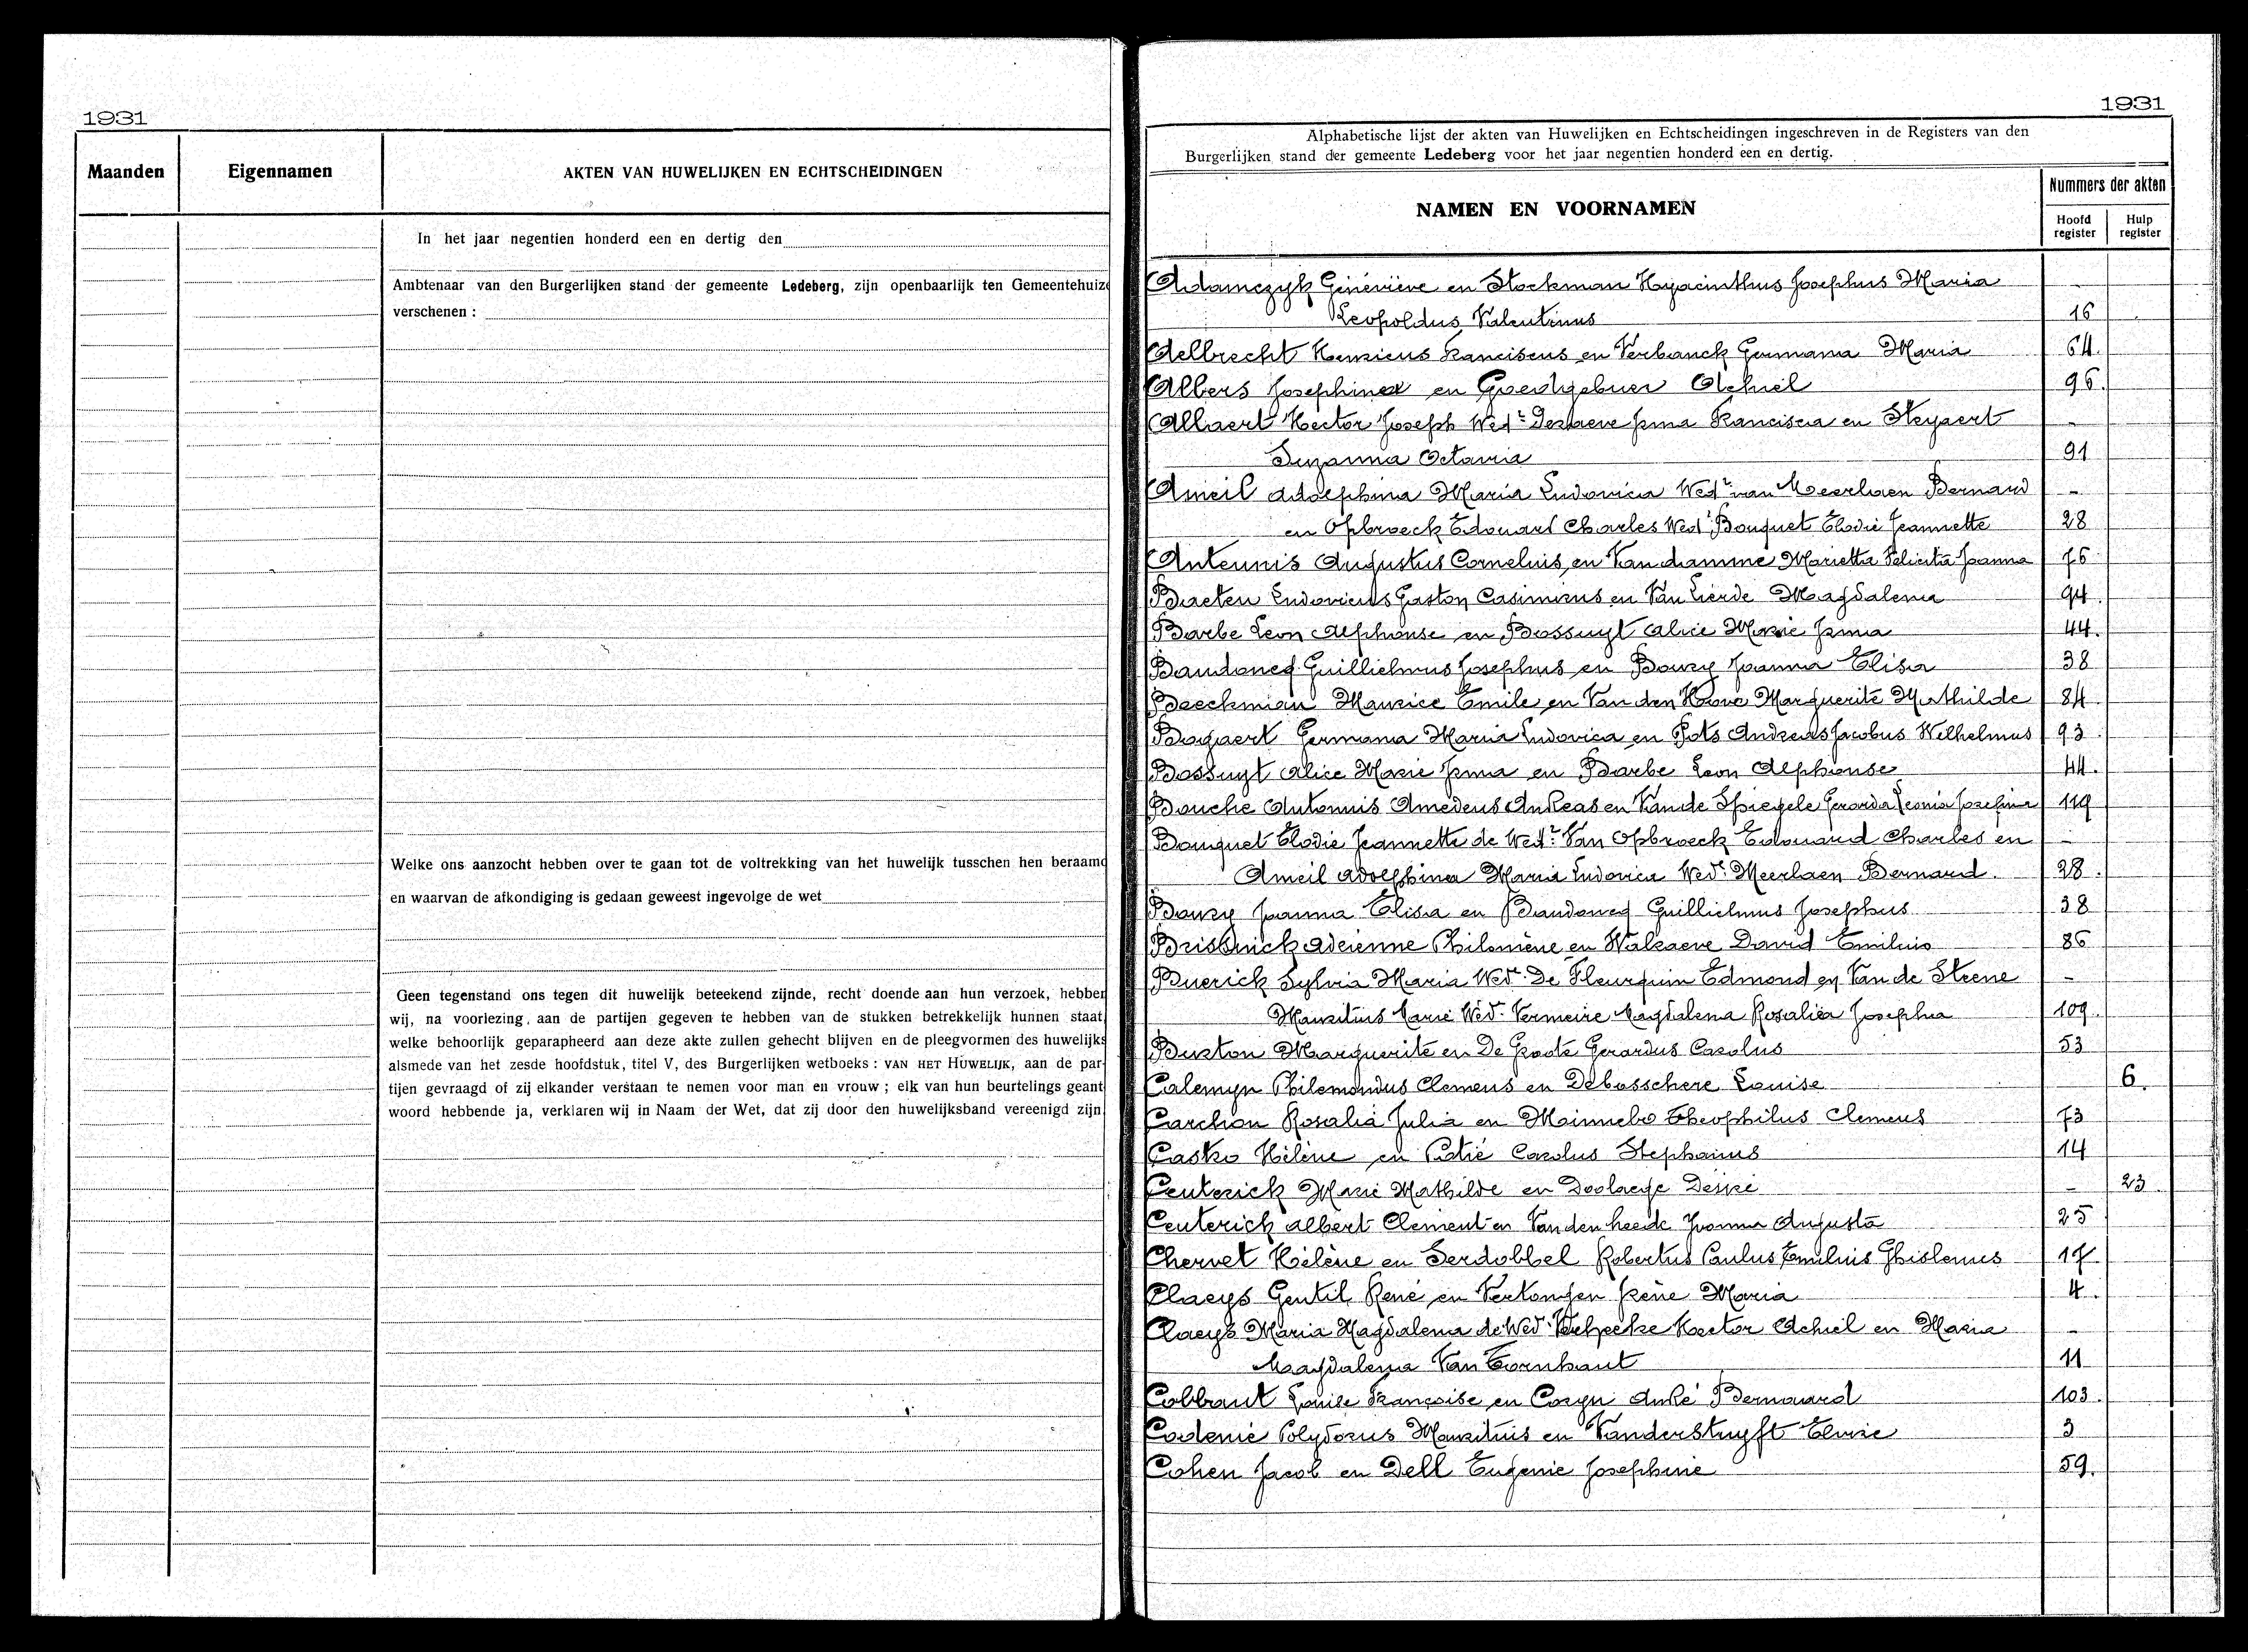 1931
Maanden
Eigennamen
AKTEN VAN HUWELIJKEN EN ECHTSCHEIDINGEN
In het jaar negentien honderd een en dertig den
Ambtenaar van den Burgerlijken stand der gemeente Ledeberg, zijn openbaarlijk ten Gemeentehuize
verschenen :
Welke ons aanzocht hebben over te gaan tot de voltrekking van het huwelijk tusschen hen beraamd
en waarvan de afkondiging is gedaan geweest ingevolge de wet
Geen tegenstand ons tegen dit huwelijk beteekend zijnde, recht doende aan hun verzoek, hebben
wij, na voorlezing, aan de partijen gegeven te hebben van de stukken betrekkelijk hunnen staat,
welke behoorlijk geparapheerd aan deze akte zullen gehecht blijven en de pleegvormen des huwelijks
alsmede van het zesde hoofdstuk, titel V, des Burgerlijken wetboeks : VAN HET HUWELIJK, aan de par-
tijen gevraagd of zij elkander verstaan te nemen voor man en vrouw ; elk van hun beurtelings geant-
woord hebbende ja, verklaren wij in Naam der Wet, dat zij door den huwelijksband vereenigd zijn
1931
Alphabetische lijst der akten van Huwelijken en Echtscheidingen ingeschreven in de Registers van den
Burgerlijken stand der gemeente Ledeberg voor het jaar negentien honderd een en dertig.
NAMEN EN VOORNAMEN
Nummers der akten
Hoofd register
Hulp register
Adamczyk Géneviève en Stockman Hyacinthus Josephus Maria -
Leopoldus Valentinus 16
Aelbrecht Henricus Franciscus en Verbanck Germana Maria 64.
Albers Josephina en Goedgebuer Achiel 96.
Allaert Hector Joseph Wedr Irma Francisca en Steyaert -
Suzanna Octavia 91
Ameil Adolphina Maria Ludovica Wedr van Meerlaen Bernard -
en Opbroeck Edouard Charles Wedr Bouquet Elodie Jeannette 28
Anteunis Augustus Cornelius en Van damme Marietta Felicita Joanna 76
Baeten Ludovicus Gaston Casimirus en Van Lierde Magdalena 94.
Barbe Leon Alphonse en Bossuyt Alice Marie Irma 44.
Baudoncq Guillielmus Josephus en Bouzy Joanna Elisa 38
Beeckman Maurice Emile en Van den Hove Marguerite Mathilde 84
Bogaert Germana Maria Ludovica en Pots Andreas Jacobus Wilhelmus 93.
Bossuyt Alice Marie Irma en Barbe Leon Alphonse 44.
Bouche Antonius Amedeus Andreas en Van de Spiegele Gerarda Leonia Josefina 119
Bouquet Elodie Jeannette de Wedr Van Opbroeck Edouard Charles en -
Ameil Adolphina Maria Ludovica Wedr Meerlaen Bernard. 28.
Bouzy Joanna Elisa en Baudoncq Guillielmus Josephus 38
Brisinick Adrienne Philomène en Walraeve David Emilius 86
Buerick Sylvia Maria Wedr De Fleurquin Edmond en Van de Steene -
Mauritius Marie Wedr Vermeire Magdalena Rosalia Josepha 109.
Burton Marguerite en De Groote Gerardus Carolus 53
Calemyn Philemondus Clemens en Debusschere Louise 6.
Carchon Rosalia Julia en Minnebo Theophilus Clemens 73
Casko Hélène en Patié Carolus Stephanus 14
Ceuterick Marie Mathilde en Doolaege Désiré - 23.
Ceuterick Albert Clement en Van den heede Yvonna Augusta 25
Chervet Hélène en Serdobbel Robertus Paulus Emilius Ghislenus 17
Claeys Gentil René en Vertongen Irène Maria 4.
Claeys Maria Magdalena de Wedr Hector Achiel en Maria -
Magdalena Van Toornhaut 11
Cobbaut Louise Françoise en Cosyn André Bernaard 103.
Codenie Polydorus Mauritius en Vanderstuyft Elvire 3
Cohen Jacob en Dell Eugenie Josephine 59.